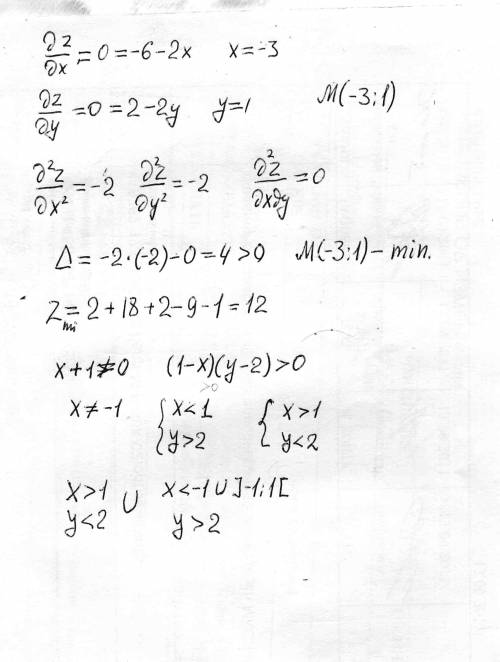 ∂z/∂x = 0 = -6 - 2x   x = -3
∂z/∂y = 0 = 2 - 2y   y = 1   M(-3; 1)
∂²z/∂x² = -2   ∂²z/∂y² = -2   ∂²z/∂x∂y = 0
Δ = -2·(-2) - 0 = 4 > 0   M(-3; 1) - min.
Z mi = 2 + 18 + 2 - 9 - 1 = 12
x + 1 ≠ 0   (1-x)(y-2) > 0
>0
x ≠ -1   { x < 1   { x > 1
y > 2   y < 2
x > 1   ∪   x < -1 ∪ ]-1; 1[
y < 2   y > 2